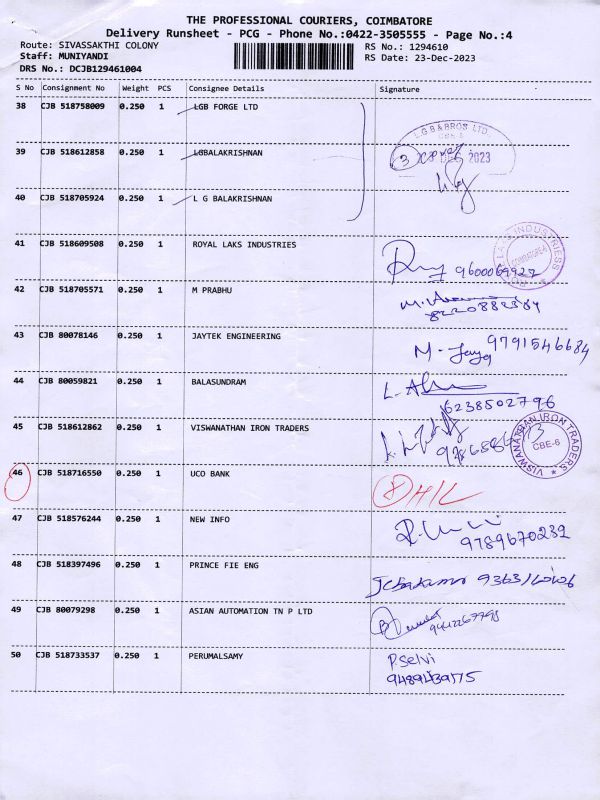 THE PROFESSIONAL COURIERS, COIMBATORE
Delivery Runsheet - PCG - Phone No.:0422-3505555 - Page No.:4
Route: SIVASSAKTHI COLONY RS No.: 1294610
Staff: MUNIYANDI RS Date: 23-Dec-2023
DRS No.: DCJB129461004
S No Consignment No Weight PCS Consignee Details Signature
38 CJB 518758009 0.250 1 LGB FORGE LTD
L.G.B & BROS LTD.
CBE-6
39 CJB 518612858 0.250 1 LGBALAKRISHNAN 3 DEC 2023
40 CJB 518705924 0.250 1 L G BALAKRISHNAN
41 CJB 518609508 0.250 1 ROYAL LAKS INDUSTRIES
COIMBATORE-6
42 CJB 518705571 0.250 1 M PRABHU
8220882384
43 CJB 80078146 0.250 1 JAYTEK ENGINEERING M. Jaya 9791546684
44 CJB 80059821 0.250 1 BALASUNDRAM
6238502796
45 CJB 518612862 0.250 1 VISWANATHAN IRON TRADERS
VISWANATHAN IRON TRADERS CBE-6
46 CJB 518716550 0.250 1 UCO BANK
47 CJB 518576244 0.250 1 NEW INFO
9789670232
48 CJB 518397496 0.250 1 PRINCE FIE ENG
49 CJB 80079298 0.250 1 ASIAN AUTOMATION TN P LTD
50 CJB 518733537 0.250 1 PERUMALSAMY P.Selvi